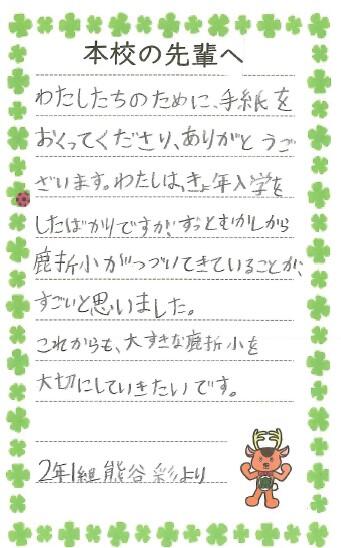 本校の先輩へ
わたしたちのために、手紙を
おくってくださり、ありがとうご
ざいます。わたしは、きょ年入学を
したばかりですが、ずっとむかしから
鹿折小がつづいてきていることが、
すごいと思いました。
これからも、大すきな鹿折小を
大切にしていきたいです。
2年1組 熊谷 彩より